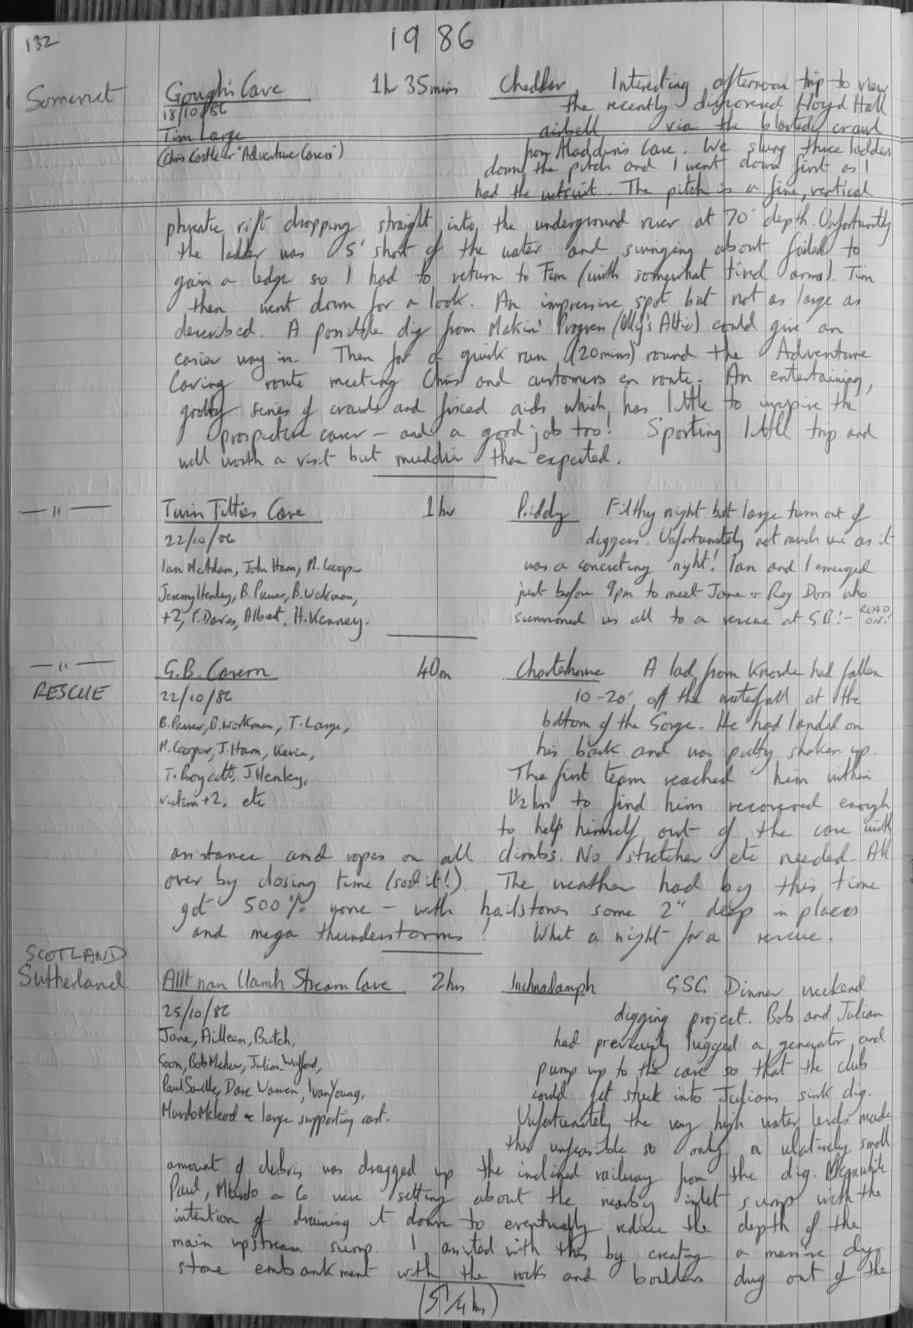 132
1986
Somerset
Gough's Cave 1hr 35mins Cheddar. Interesting afternoon trip to view
18/10/86 the recently discovered Lloyd Hall
Tim Large airbell via the blasted crawl
(Chris Castle's "Adventure Cavers") from Maddin's Cave. We slung three ladders
down the pitch and I went down first as I
had the wetsuit. The pitch is a fine, vertical
phreatic rift dropping straight into the underground river at 70' depth. Unfortunately
the ladder was 5' short of the water and swinging about failed to
gain a ledge so I had to return to Tim (with somewhat tired arms). Tim
then went down for a look. An impressive spot but not as large as
described. A possible dig from Makin' Progress (Olly's Attic) could give an
easier way in. Then for a quick run (20mins) round the Adventure
Caving route meeting Chris and customers en route. An entertaining,
grotty series of crawls and forced aids which has little to inspire the
prospective caver – and a good job too! Sporting little trip and
well worth a visit but muddier than expected.
— " — Twin Titties Cave 1hr Priddy Filthy night but large turn out of
22/10/86 diggers. Unfortunately not much use as it
Ian McAdam, John Ham, M. Cooper was a concreting night! Ian and I emerged
Jeremy Henley, B. Prewer, B. Workman, just before 9pm to meet Jane + Roy Dors who
+2, P. Davis, Albert, H. Kenney. summoned us all to a rescue at GB! – READ ON!
— " — G.B. Cavern 40m Charterhouse A lad from Knowle had fallen
RESCUE 22/10/86 10-20' off the waterfall at the
B. Prewer, B. Workman, T. Large, bottom of the Gorge. He had landed on
M. Cooper, J. Ham, Kevin, his back and was pretty shaken up.
T. Boycott, J. Henley, The first team reached him within
victim +2, etc 1½ hrs to find him recovered enough
to help himself out of the cave with
assistance and ropes on all climbs. No stretcher etc needed. All
over by closing time (sod it!). The weather had by this time
got 500% worse – with hailstones some 2" deep in places
and mega thunderstorms! What a night for a rescue.
SCOTLAND
Sutherland Allt nan Uamh Stream Cave 2hrs Inchnadamph GSG Dinner weekend
25/10/86 digging project. Bob and Julian
Jane, Aileen, Butch, had previously lugged a generator and
Goon, Bob Mehew, Julian Walford, pump up to the cave so that the club
Paul Saville, Dave Warren, Ivan Young, could get stuck into Julians sink dig.
Murdo McLeod + large supporting cast. Unfortunately the very high water levels made
this unfeasible so only a relatively small
amount of debris was dragged up the inclined railway from the dig. Meanwhile
Paul, Murdo + Co were setting about the nearby inlet sump with the
intention of draining it down to eventually reduce the depth of the
main upstream sump. I assisted with this by creating a massive dry
stone embankment with the rocks and boulders dug out of the
(5¼ hrs)